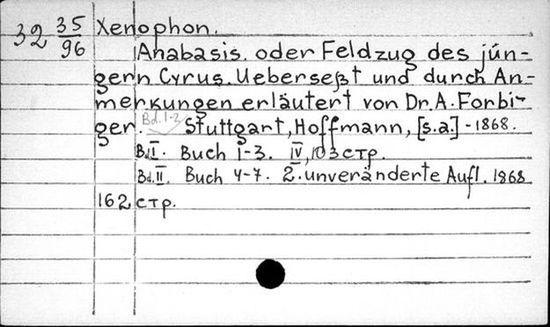 32 35/96 Xenophon.
Anabasis. oder Feldzug des jün-
gern Cyrus. Ueberseßt und durch An-
merkungen erläutert von Dr. A. Forbi-
ger. Bd. 1-2 Stuttgart, Hoffmann, [s.a.] - 1868.
Bd. I. Buch 1-3. IV, 103 стр.
Bd. II. Buch 4-7. 2. unveränderte Aufl. 1868
162 стр.